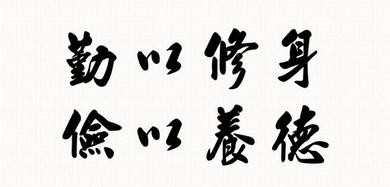 勤以修身
儉以養德